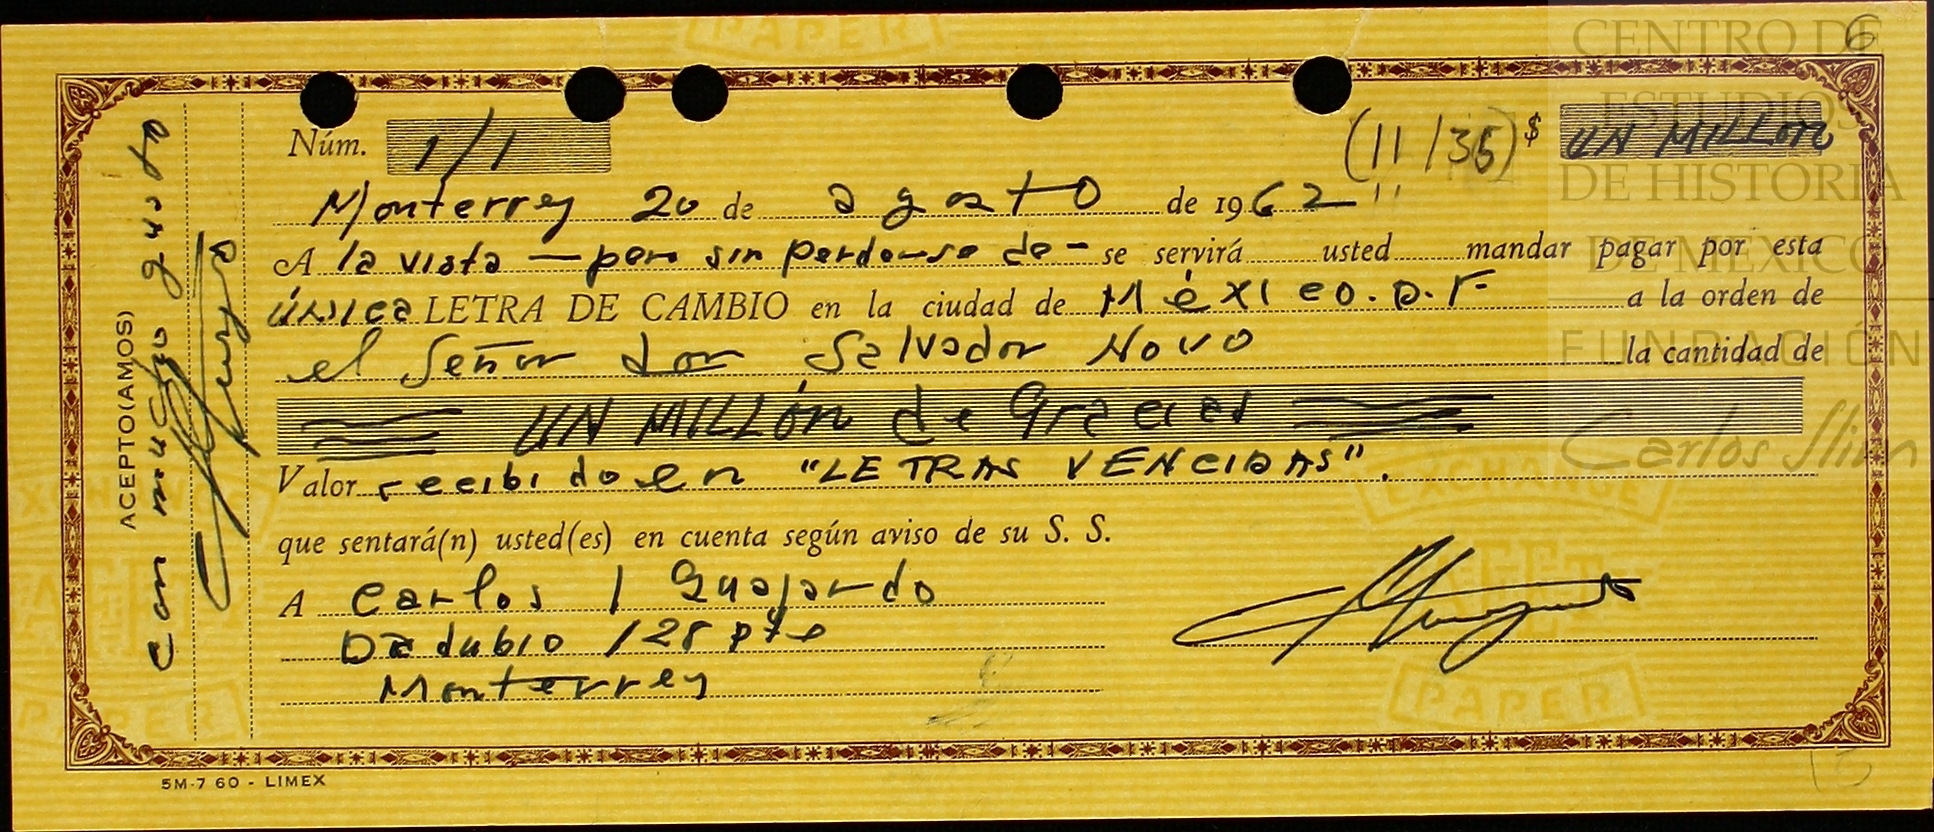 CENTRO DE
ESTUDIOS
DE HISTORIA
DE MÉXICO
FUNDACIÓN
Carlos Slim
6
PAPER
Núm. 1/1
(11/35) $ UN MILLON
Monterrey 20 de agosto de 1962
A la vista — pero sin perderse de — se servirá usted mandar pagar por esta
única LETRA DE CAMBIO en la ciudad de México. D.F a la orden de
el Señor don Salvador Novo la cantidad de
UN MILLÓN de Gracias
Valor recibido en "LETRAS VENCIDAS".
EXCHANGE
que sentará(n) usted(es) en cuenta según aviso de su S. S.
A Carlos I Guajardo
Danubio 128 pte
Monterrey
PAPER
ACEPTO(AMOS)
con mucho gusto
5M-7 60 - LIMEX